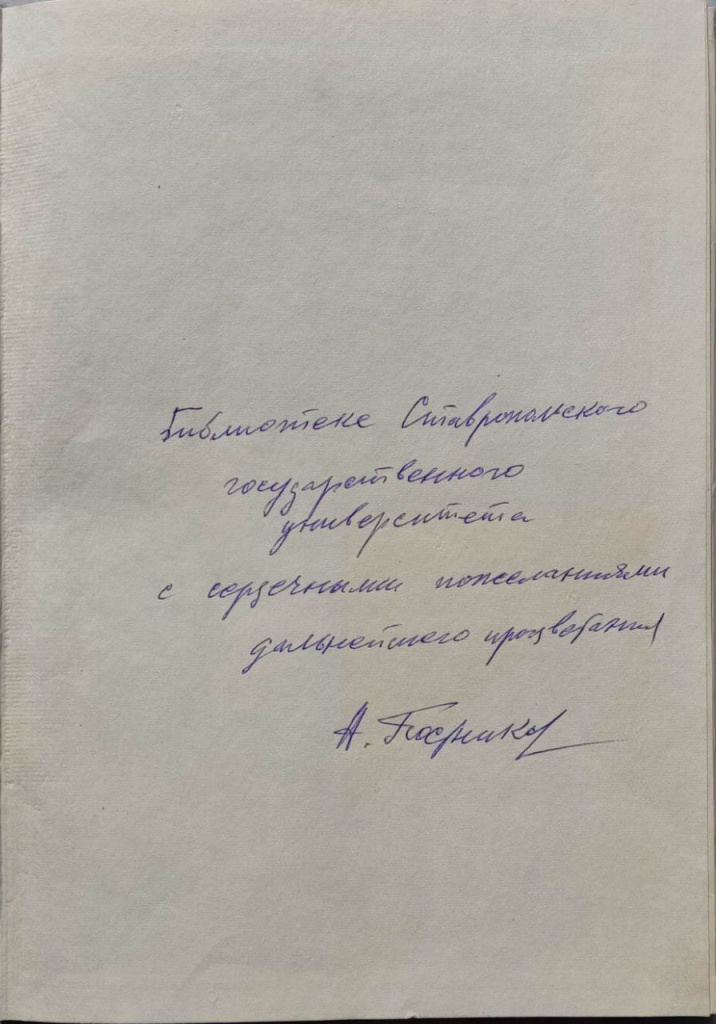 Библиотеке Ставропольского
государственного
университета
с сердечными пожеланиями
дальнейшего процветания
А.